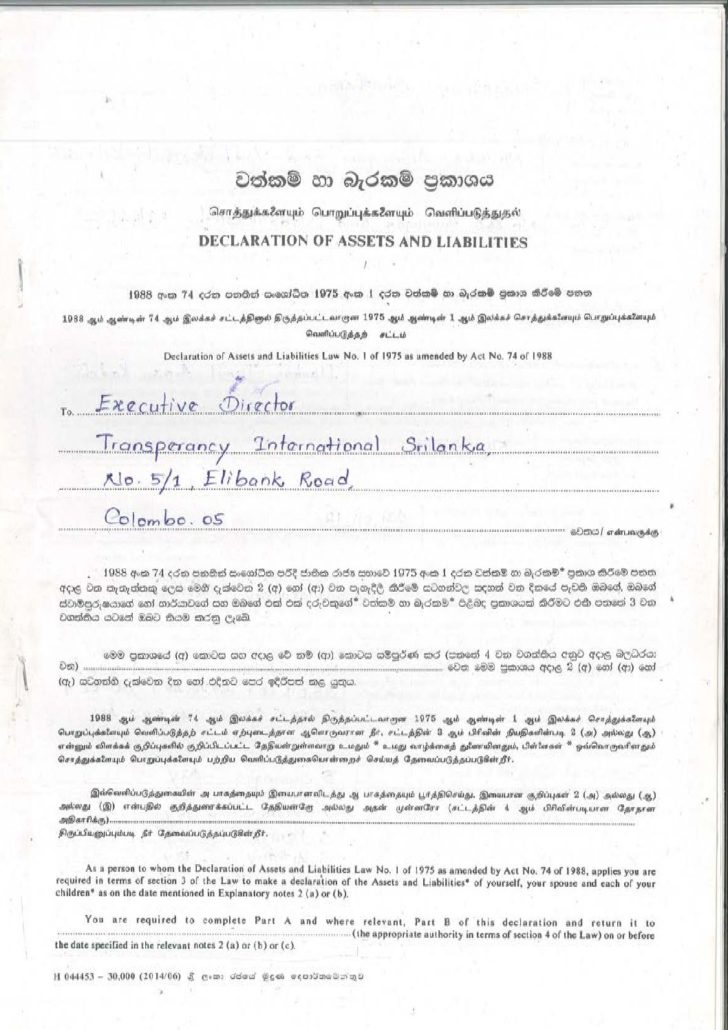 වත්කම් හා බැරකම් ප්‍රකාශය
சொத்துக்களையும் பொறுப்புக்களையும் வெளிப்படுத்துதல்
DECLARATION OF ASSETS AND LIABILITIES
1988 අංක 74 දරන පනතින් සංශෝධිත 1975 අංක 1 දරන වත්කම් හා බැරකම් ප්‍රකාශ කිරීමේ පනත
1988 ஆம் ஆண்டின் 74 ஆம் இலக்கச் சட்டத்தினால் திருத்தப்பட்டவாறான 1975 ஆம் ஆண்டின் 1 ஆம் இலக்கச் சொத்துக்களையும் பொறுப்புக்களையும்
வெளிப்படுத்தற் சட்டம்
Declaration of Assets and Liabilities Law No. 1 of 1975 as amended by Act No. 74 of 1988
To. Executive Director
Transperancy International Srilanka,
No. 5/1, Elibank Road,
Colombo. 05
වෙතය/ என்பவருக்கு
1988 අංක 74 දරන පනතින් සංශෝධිත පරිදි ජාතික රාජ්‍ය සභාවේ 1975 අංක 1 දරන වත්කම් හා බැරකම්* ප්‍රකාශ කිරීමේ පනත
අදාළ වන තැනැත්තකු ලෙස මෙහි දැක්වෙන 2 (අ) හෝ (ආ) වන පැහැදිලි කිරීමේ සටහන්වල සඳහන් වන දිනයේ පැවති ඔබගේ, ඔබගේ
ස්වාමිපුරුෂයාගේ හෝ භාර්යාවගේ සහ ඔබගේ එක් එක් දරුවකුගේ* වත්කම් හා බැරකම්* පිළිබඳ ප්‍රකාශයක් කිරීමට එකී පනතේ 3 වන
වගන්තිය යටතේ ඔබට නියම කරනු ලැබේ.
මෙම ප්‍රකාශයේ (අ) කොටස සහ අදාළ වේ නම් (ආ) කොටස සම්පූර්ණ කර (පනතේ 4 වන වගන්තිය අනුව අදාළ බලධරයා
වන) ........ වෙත මෙම ප්‍රකාශය අදාළ 2 (අ) හෝ (ආ) හෝ
(ඇ) සටහන්හි දැක්වෙන දින හෝ එදිනට පෙර ඉදිරිපත් කළ යුතුය.
1988 ஆம் ஆண்டின் 74 ஆம் இலக்கச் சட்டத்தால் திருத்தப்பட்டவாறான 1975 ஆம் ஆண்டின் 1 ஆம் இலக்கச் சொத்துக்களையும்
பொறுப்புக்களையும் வெளிப்படுத்தற் சட்டம் ஏற்புடைத்தான ஆளொருவரான நீர், சட்டத்தின் 3 ஆம் பிரிவின் நியதிகளின்படி 2 (அ) அல்லது (ஆ)
என்னும் விளக்கக் குறிப்புகளில் குறிப்பிடப்பட்ட தேதியன்றுள்ளவாறு உமதும் * உமது வாழ்க்கைத் துணையினதும், பிள்ளைகள் * ஒவ்வொருவரினதும்
சொத்துக்களையும் பொறுப்புக்களையும் பற்றிய வெளிப்படுத்துகையொன்றைச் செய்யத் தேவைப்படுத்தப்படுகின்றீர்.
இவ்வெளிப்படுத்துகையின் அ பாகத்தையும் இயைபானவிடத்து ஆ பாகத்தையும் பூர்த்திசெய்து, இயைபான குறிப்புகள் 2 (அ) அல்லது (ஆ)
அல்லது (இ) என்பதில் குறித்துரைக்கப்பட்ட தேதியன்றோ அல்லது அதன் முன்னரோ (சட்டத்தின் 4 ஆம் பிரிவின்படியான தோதான
அதிகாரிக்கு)........
திருப்பியனுப்பும்படி நீர் தேவைப்படுத்தப்படுகின்றீர்.
As a person to whom the Declaration of Assets and Liabilities Law No. 1 of 1975 as amended by Act No. 74 of 1988, applies you are
required in terms of section 3 of the Law to make a declaration of the Assets and Liabilities* of yourself, your spouse and each of your
children* as on the date mentioned in Explanatory notes 2 (a) or (b).
You are required to complete Part A and where relevant, Part B of this declaration and return it to
........(the appropriate authority in terms of section 4 of the Law) on or before
the date specified in the relevant notes 2 (a) or (b) or (c).
H 044453 – 30,000 (2014/06) ශ්‍රී ලංකා රජයේ මුද්‍රණ දෙපාර්තමේන්තුව